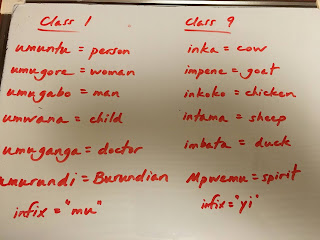 Class 1
umuntu = person
umugore = woman
umugabo = man
umwana = child
umuganga = doctor
umurundi = Burundian
infix = "mu"
Class 9
inka = cow
impene = goat
inkoko = chicken
intama = sheep
imbata = duck
Mpwemu = spirit
infix = "yi"